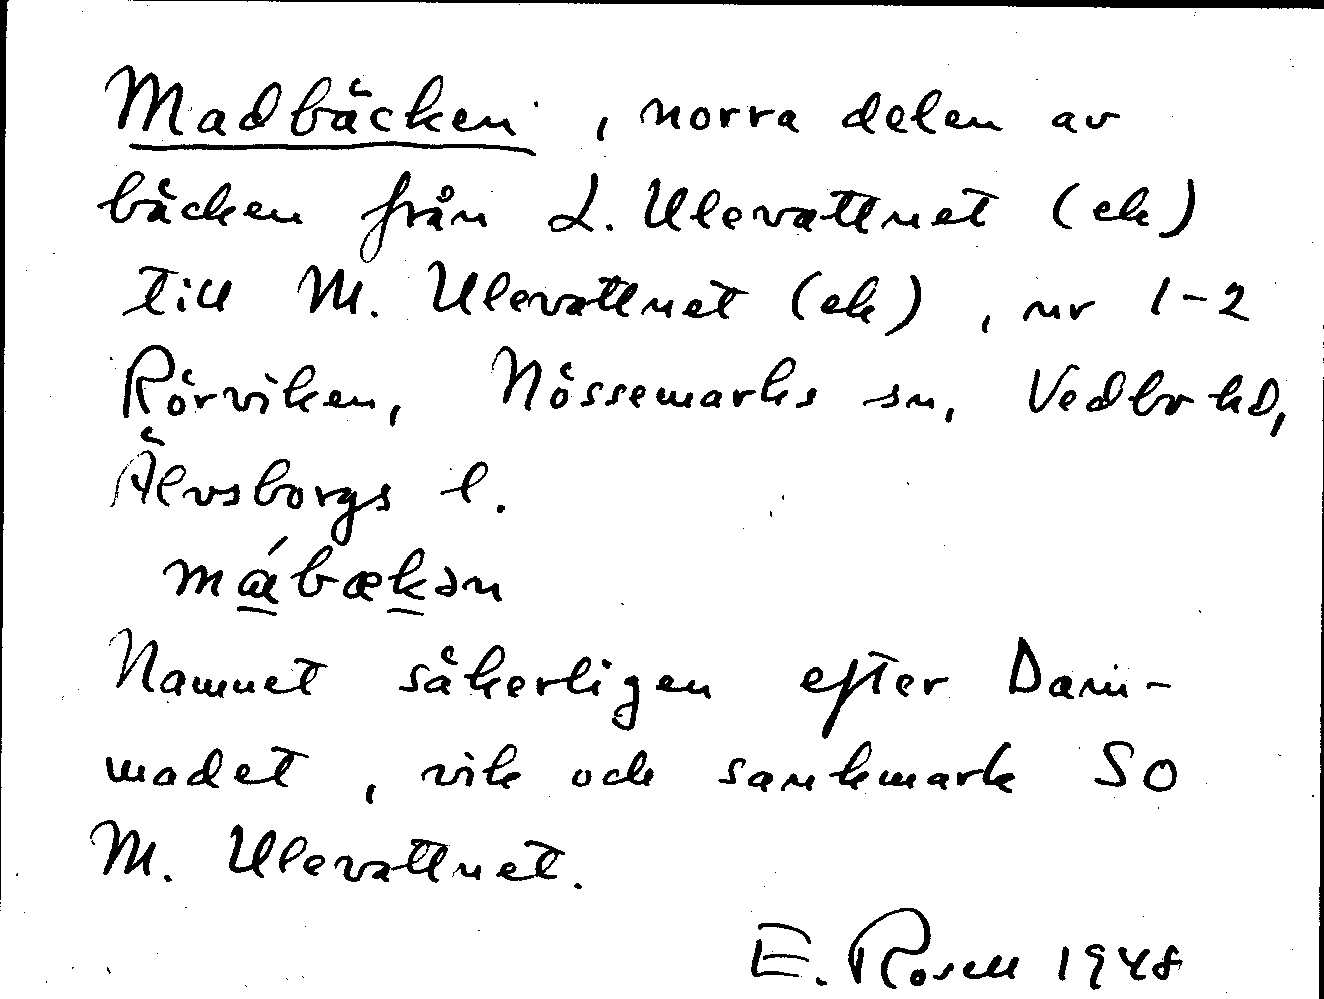 Madbäcken, norra delen av
bäcken från L. Ulevattnet (ek)
till M. Ulevattnet (ek), nr 1-2
Rörviken, Nössemarks sn, Vedbo hd,
Älvsborgs l.
mábækən
Namnet säkerligen efter Dam-
madet, vik och sankmark SO
M. Ulevattnet.
E. Rosell 1948